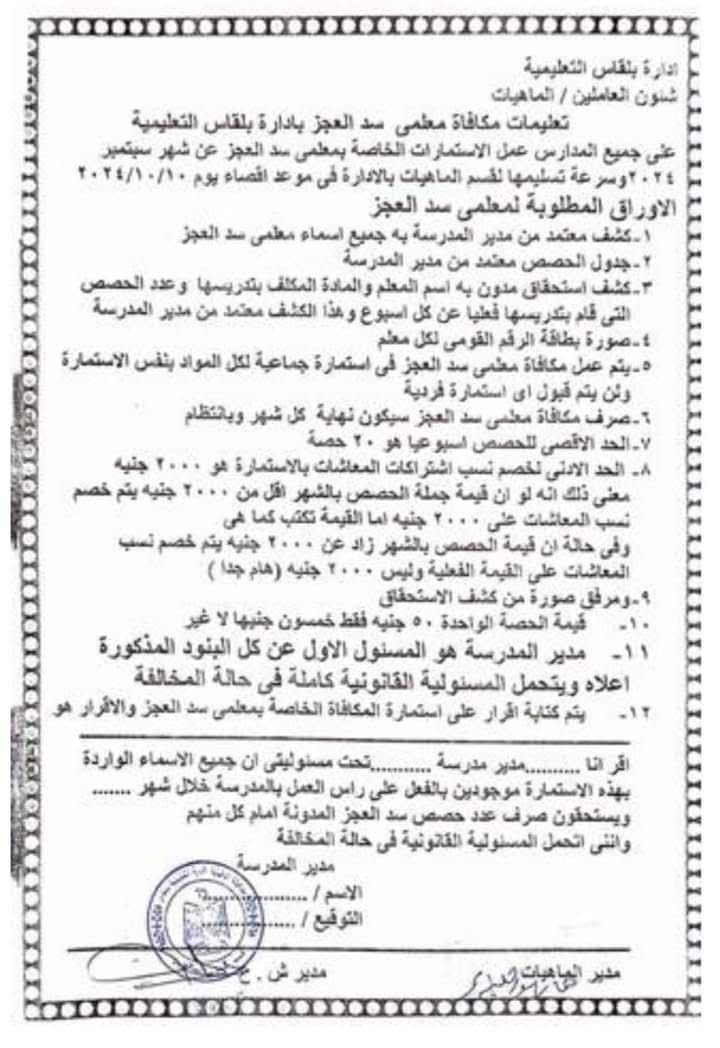 ادارة بلقاس التعليمية
شئون العاملين / الماهيات
تعليمات مكافاة معلمى سد العجز بادارة بلقاس التعليمية
على جميع المدارس عمل الاستمارات الخاصة بمعلمى سد العجز عن شهر سبتمبر
٢٠٢٤وسرعة تسليمها لقسم الماهيات بالادارة فى موعد اقصاه يوم ٢٠٢٤/١٠/١٠
الاوراق المطلوبة لمعلمى سد العجز
١-كشف معتمد من مدير المدرسة به جميع اسماء معلمى سد العجز
٢-جدول الحصص معتمد من مدير المدرسة
٣-كشف استحقاق مدون به اسم المعلم والمادة المكلف بتدريسها وعدد الحصص
التى قام بتدريسها فعليا عن كل اسبوع وهذا الكشف معتمد من مدير المدرسة
٤-صورة بطاقة الرقم القومى لكل معلم
٥-يتم عمل مكافاة معلمى سد العجز فى استمارة جماعية لكل المواد بنفس الاستمارة
ولن يتم قبول اى استمارة فردية
٦-صرف مكافاة معلمى سد العجز سيكون نهاية كل شهر وبانتظام
٧-الحد الاقصى للحصص اسبوعيا هو ٢٠ حصة
٨- الحد الادنى لخصم نسب اشتراكات المعاشات بالاستمارة هو ٢٠٠٠ جنيه
معنى ذلك انه لو ان قيمة جملة الحصص بالشهر اقل من ٢٠٠٠ جنيه يتم خصم
نسب المعاشات على ٢٠٠٠ جنيه اما القيمة تكتب كما هى
وفى حالة ان قيمة الحصص بالشهر زاد عن ٢٠٠٠ جنيه يتم خصم نسب
المعاشات على القيمة الفعلية وليس ٢٠٠٠ جنيه (هام جدا )
٩-ومرفق صورة من كشف الاستحقاق
١٠- قيمة الحصة الواحدة ٥٠ جنيه فقط خمسون جنيها لا غير
١١- مدير المدرسة هو المسئول الاول عن كل البنود المذكورة
اعلاه ويتحمل المسئولية القانونية كاملة فى حالة المخالفة
١٢- يتم كتابة اقرار على استمارة المكافاة الخاصة بمعلمى سد العجز والاقرار هو
اقر انا ..........مدير مدرسة ...........تحت مسئوليتى ان جميع الاسماء الواردة
بهذه الاستمارة موجودين بالفعل على راس العمل بالمدرسة خلال شهر .......
ويستحقون صرف عدد حصص سد العجز المدونة امام كل منهم
واننى اتحمل المسئولية القانونية فى حالة المخالفة
مدير المدرسة
الاسم / ..................
التوقيع / ................
مدير الماهيات
مدير ش . ع